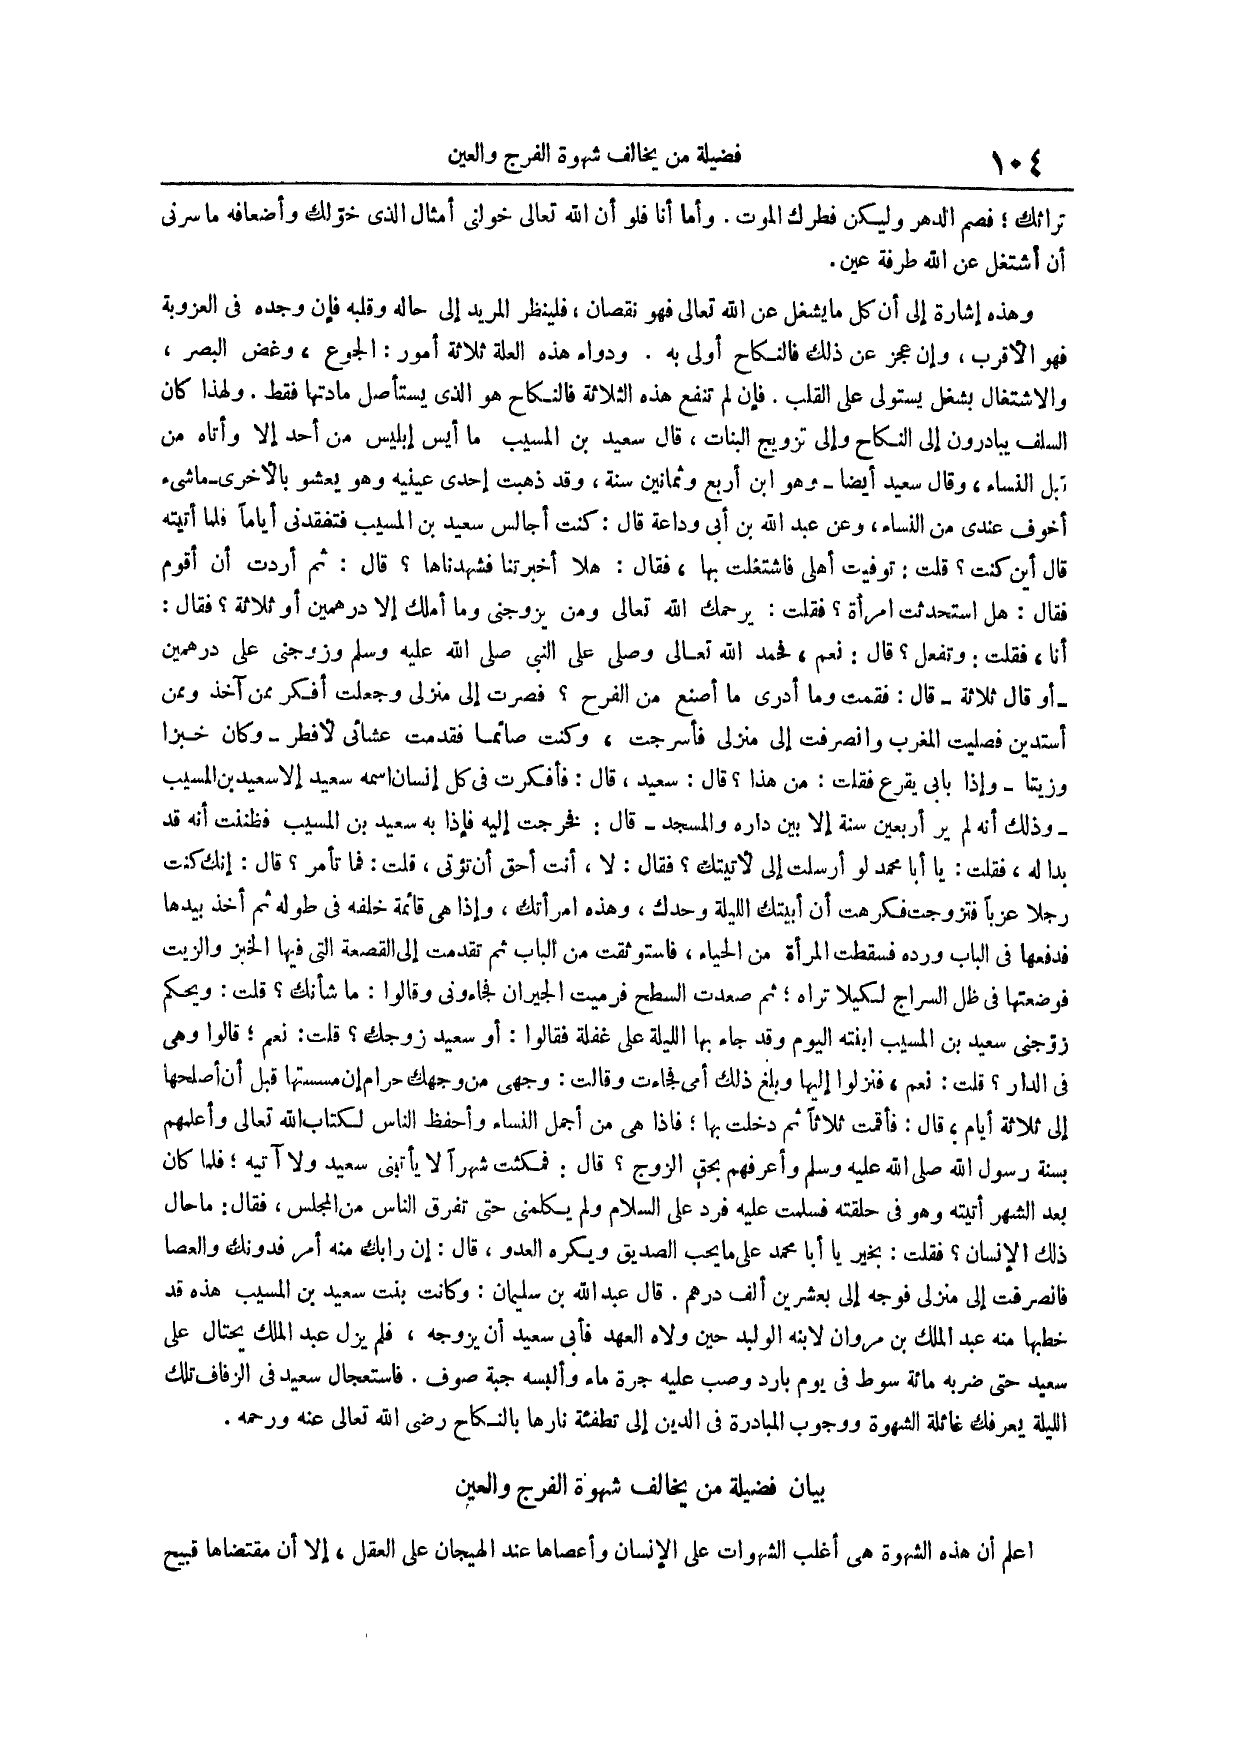 ١٠٤ فضيلة من يخالف شهوة الفرج والعين
تراثك ؛ فصم الدهر وليكن فطرك الموت . وأما أنا فلو أن الله تعالى خولنى أمثال الذى خوّلك وأضعافه ما سرنى
أن أشتغل عن الله طرفة عين .
وهذه إشارة إلى أن كل مايشغل عن الله تعالى فهو نقصان ، فلينظر المريد إلى حاله وقلبه فإن وجده فى العزوبة
فهو الأقرب ، وإن عجز عن ذلك فالنكاح أولى به . ودواء هذه العلة ثلاثة أمور : الجوع ، وغض البصر ،
والاشتغال بشغل يستولى على القلب . فإن لم تنفع هذه الثلاثة فالنكاح هو الذى يستأصل مادتها فقط . ولهذا كان
السلف يبادرون إلى النكاح وإلى تزويج البنات ، قال سعيد بن المسيب ما أيس إبليس من أحد إلا وأتاه من
قبل النساء ، وقال سعيد أيضا ـ وهو ابن أربع وثمانين سنة ، وقد ذهبت إحدى عينيه وهو يعشو بالأخرى ـ ماشىء
أخوف عندى من النساء ، وعن عبد الله بن أبى وداعة قال : كنت أجالس سعيد بن المسيب فتفقدنى أياماً فلما أتيته
قال أين كنت ؟ قلت : توفيت أهلى فاشتغلت بها ، فقال : هلا أخبرتنا فشهدناها ؟ قال : ثم أردت أن أقوم
فقال : هل استحدثت امرأة ؟ فقلت : يرحمك الله تعالى ومن يزوجنى وما أملك إلا درهمين أو ثلاثة ؟ فقال :
أنا ، فقلت : وتفعل ؟ قال : نعم ، فحمد الله تعالى وصلى على النبى صلى الله عليه وسلم وزوجنى على درهمين
ـ أو قال ثلاثة ـ قال : فقمت وما أدرى ما أصنع من الفرح ؟ فصرت إلى منزلى وجعلت أفكر ممن آخذ وممن
أستدين فصليت المغرب وانصرفت إلى منزلى فأسرجت ، وكنت صائما فقدمت عشائى لأفطر ـ وكان خبزا
وزيتا ـ وإذا بابى يقرع فقلت : من هذا ؟ قال : سعيد ، قال : فأفكرت فى كل إنسان اسمه سعيد إلا سعيد بن المسيب
ـ وذلك أنه لم ير أربعين سنة إلا بين داره والمسجد ـ قال : فخرجت إليه فإذا به سعيد بن المسيب فظننت أنه قد
بدا له ، فقلت : يا أبا محمد لو أرسلت إلى لأتيتك ؟ فقال : لا ، أنت أحق أن تؤتى ، قلت : فما تأمر ؟ قال : إنك كنت
رجلا عزباً فتزوجت فكرهت أن أبيتك الليلة وحدك ، وهذه امرأتك ، وإذا هى قائمة خلفه فى طوله ثم أخذ بيدها
فدفعها فى الباب ورده فسقطت المرأة من الحياء ، فاستوثقت من الباب ثم تقدمت إلى القصعة التى فيها الخبز والزيت
فوضعتها فى ظل السراج لكيلا تراه ؛ ثم صعدت السطح فرميت الجيران فجاءونى وقالوا : ما شأنك ؟ قلت : ويحكم
زوّجنى سعيد بن المسيب ابنته اليوم وقد جاء بها الليلة على غفلة فقالوا : أو سعيد زوجك ؟ قلت : نعم ؛ قالوا وهى
فى الدار ؟ قلت : نعم ، فنزلوا إليها وبلغ ذلك أمى فجاءت وقالت : وجهى من وجهك حرام إن مسستها قبل أن أصلحها
إلى ثلاثة أيام ، قال : فأقمت ثلاثاً ثم دخلت بها ؛ فاذا هى من أجمل النساء وأحفظ الناس لكتاب الله تعالى وأعلمهم
بسنة رسول الله صلى الله عليه وسلم وأعرفهم بحق الزوج ؟ قال : فمكثت شهراً لا يأتينى سعيد ولا آتيه ؛ فلما كان
بعد الشهر أتيته وهو فى حلقته فسلمت عليه فرد على السلام ولم يكلمنى حتى تفرق الناس من المجلس ، فقال : ماحال
ذلك الإنسان ؟ فقلت : بخير يا أبا محمد على مايحب الصديق ويكره العدو ، قال : إن رابك منه أمر فدونك والعصا
فانصرفت إلى منزلى فوجه إلى بعشرين ألف درهم . قال عبد الله بن سليمان : وكانت بنت سعيد بن المسيب هذه قد
خطبها منه عبد الملك بن مروان لابنه الوليد حين ولاه العهد فأبى سعيد أن يزوجه ، فلم يزل عبد الملك يحتال على
سعيد حتى ضربه مائة سوط فى يوم بارد وصب عليه جرة ماء وألبسه جبة صوف . فاستعجال سعيد فى الزفاف تلك
الليلة يعرفك غائلة الشهوة ووجوب المبادرة فى الدين إلى تطفئة نارها بالنكاح رضى الله تعالى عنه ورحمه .
بيان فضيلة من يخالف شهوة الفرج والعين
اعلم أن هذه الشهوة هى أغلب الشهوات على الإنسان وأعصاها عند الهيجان على العقل ، إلا أن مقتضاها قبيح